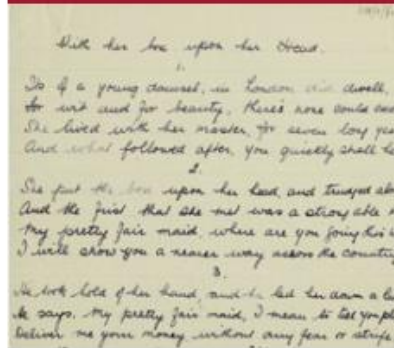 With her box upon her Head.
1.
Its of a young damsel, in London did dwell,
for wit and for beauty, there's none could
She lived with her master, for seven long
And what followed after, you quickly shall
2.
She put the box upon her head, and trudged
And the first that she met was a strong able
My pretty fair maid, where are you going this
I will show you a nearer way across the country
3.
He took hold of her hand, and he led her down a
He says, My pretty fair maid, I mean to tell you
Deliver me your money without any fear or strife